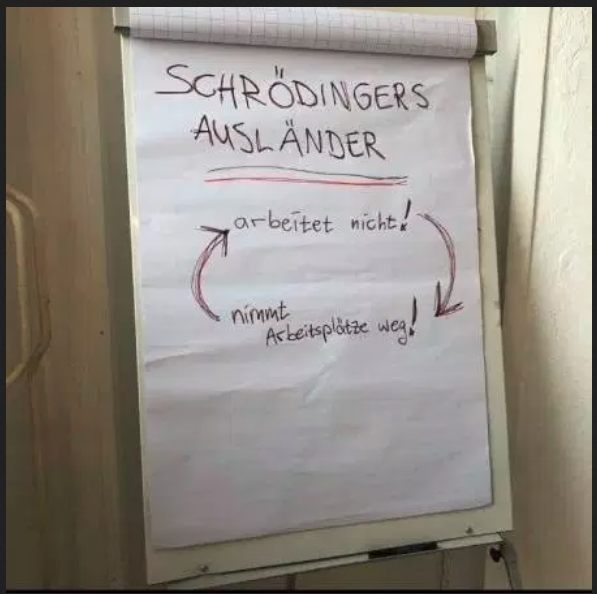 SCHRÖDINGERS
AUSLÄNDER
arbeitet nicht!
nimmt
Arbeitsplätze weg!